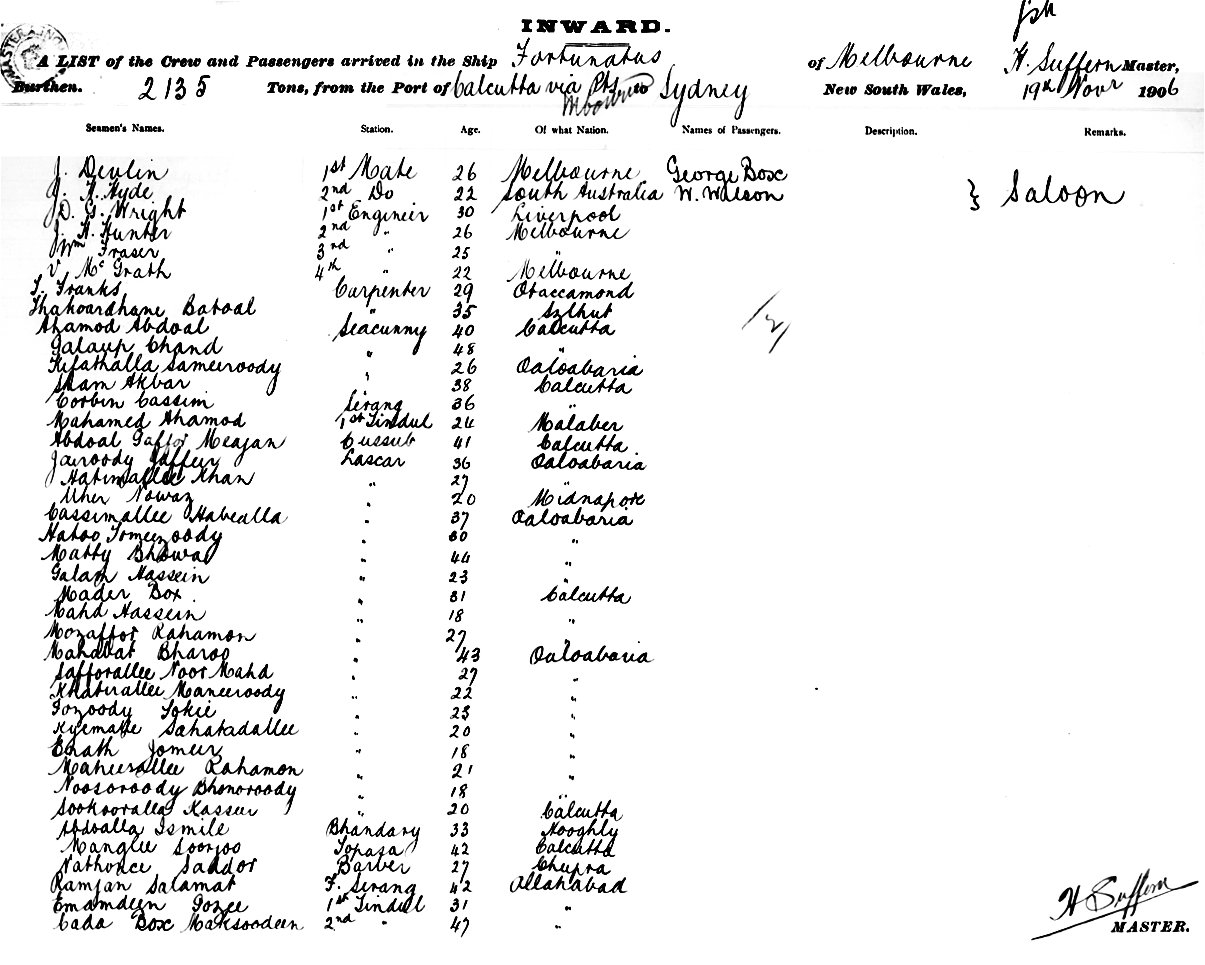 INWARD.
A LIST of the Crew and Passengers arrived in the Ship Fortunatus of Melbourne H. Suffern Master,
Burthen. 2135 Tons, from the Port of Calcutta via Pts Sydney New South Wales, 19th Novr 1906
Seamen's Names. Station. Age. Of what Nation. Names of Passengers. Description. Remarks.
J. Devlin 1st Mate 26 Melbourne George Box
J. H. Hyde 2nd Do 22 South Australia W. Watson } Saloon
D. G. Wright 1st Engineer 30 Liverpool
J. H. Hunter 2nd " 26 Melbourne
Wm Fraser 3rd " 25 "
V. McGrath 4th " 22 Melbourne
T. Franks Carpenter 29 Otaccamond
Thakoardhane Batoal " 35 Sylhut
Ahamod Abdoal Seacunny 40 Calcutta
Galaup Chand " 48 "
Kifathalla Sameeroody " 26 Oaloabaria
Sham Akbar " 38 Calcutta
Corbin Cassim Serang 36 "
Mahamed Ahamod 1st Tindul 24 Malaber
Abdoal Gaffor Meajan Cussub 41 Calcutta
Jairoody Jaffeer Lascar 36 Oaloabaria
Hatimallee Khan " 27 "
Uher Nowaz " 20 Midnapore
Cassimallee Habealla " 37 Oaloabaria
Hatoo Tomeezoody " 30 "
Matty Bhowal " 44 "
Galam Hassein " 23 "
Mader Box " 31 Calcutta
Mahd Hassein " 18 "
Mozaffor Rahamon " 27 "
Mahabat Bharoo " 43 Oaloabaria
Safforallee Noor Mahd " 27 "
Khatirallee Maneeroody " 22 "
Fozoody Tokie " 23 "
Kyematte Sahatadallee " 20 "
Ehath Jomeer " 18 "
Maheerallee Rahamon " 21 "
Noosoroody Bhonoroody " 18 "
Sookooralla Kasseer " 20 Calcutta
Abdoalla Ismile Bhandary 33 Hooghly
Manglee Soorjoo Topasa 42 Calcutta
Nathonee Saddor Barber 27 Chupra
Ramjan Salamat F. Serang 42 Allahabad
Emamdeen Gozee 1st Tindul 31 "
Cada Box Maksoodeen 2nd " 47 "
H Suffern
MASTER.